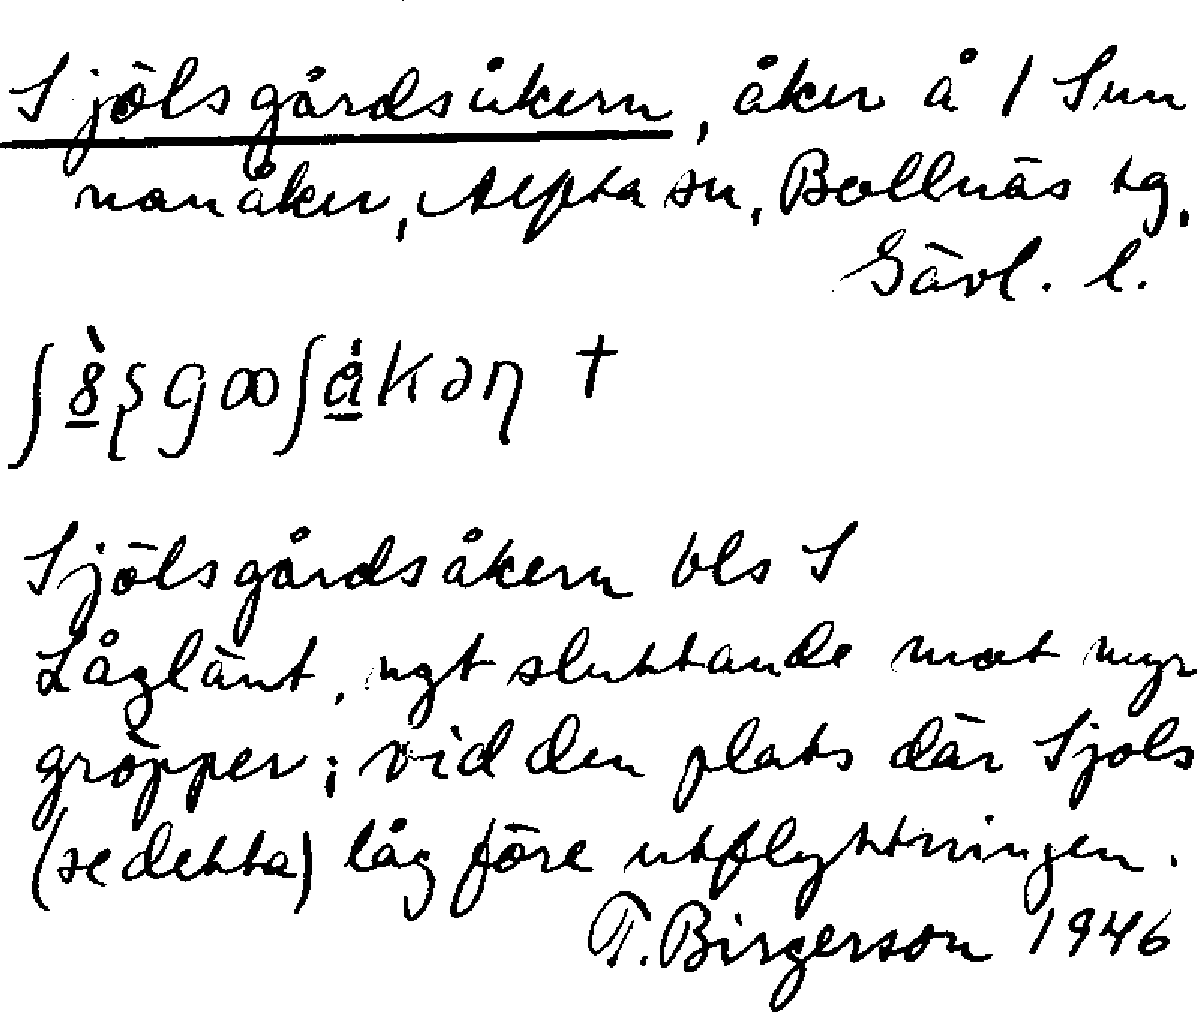 Sjölsgårdsåkern, åker å 1 Sun
nanåker, Alfta sn, Bollnäs tg,
Gävl. l.
Sjölsgårdsåkern bls S
Låglänt, ngt sluttande mot myr
gröpper; vid den plats där Sjols
(se detta) låg före utflyttningen.
T. Birgerson 1946